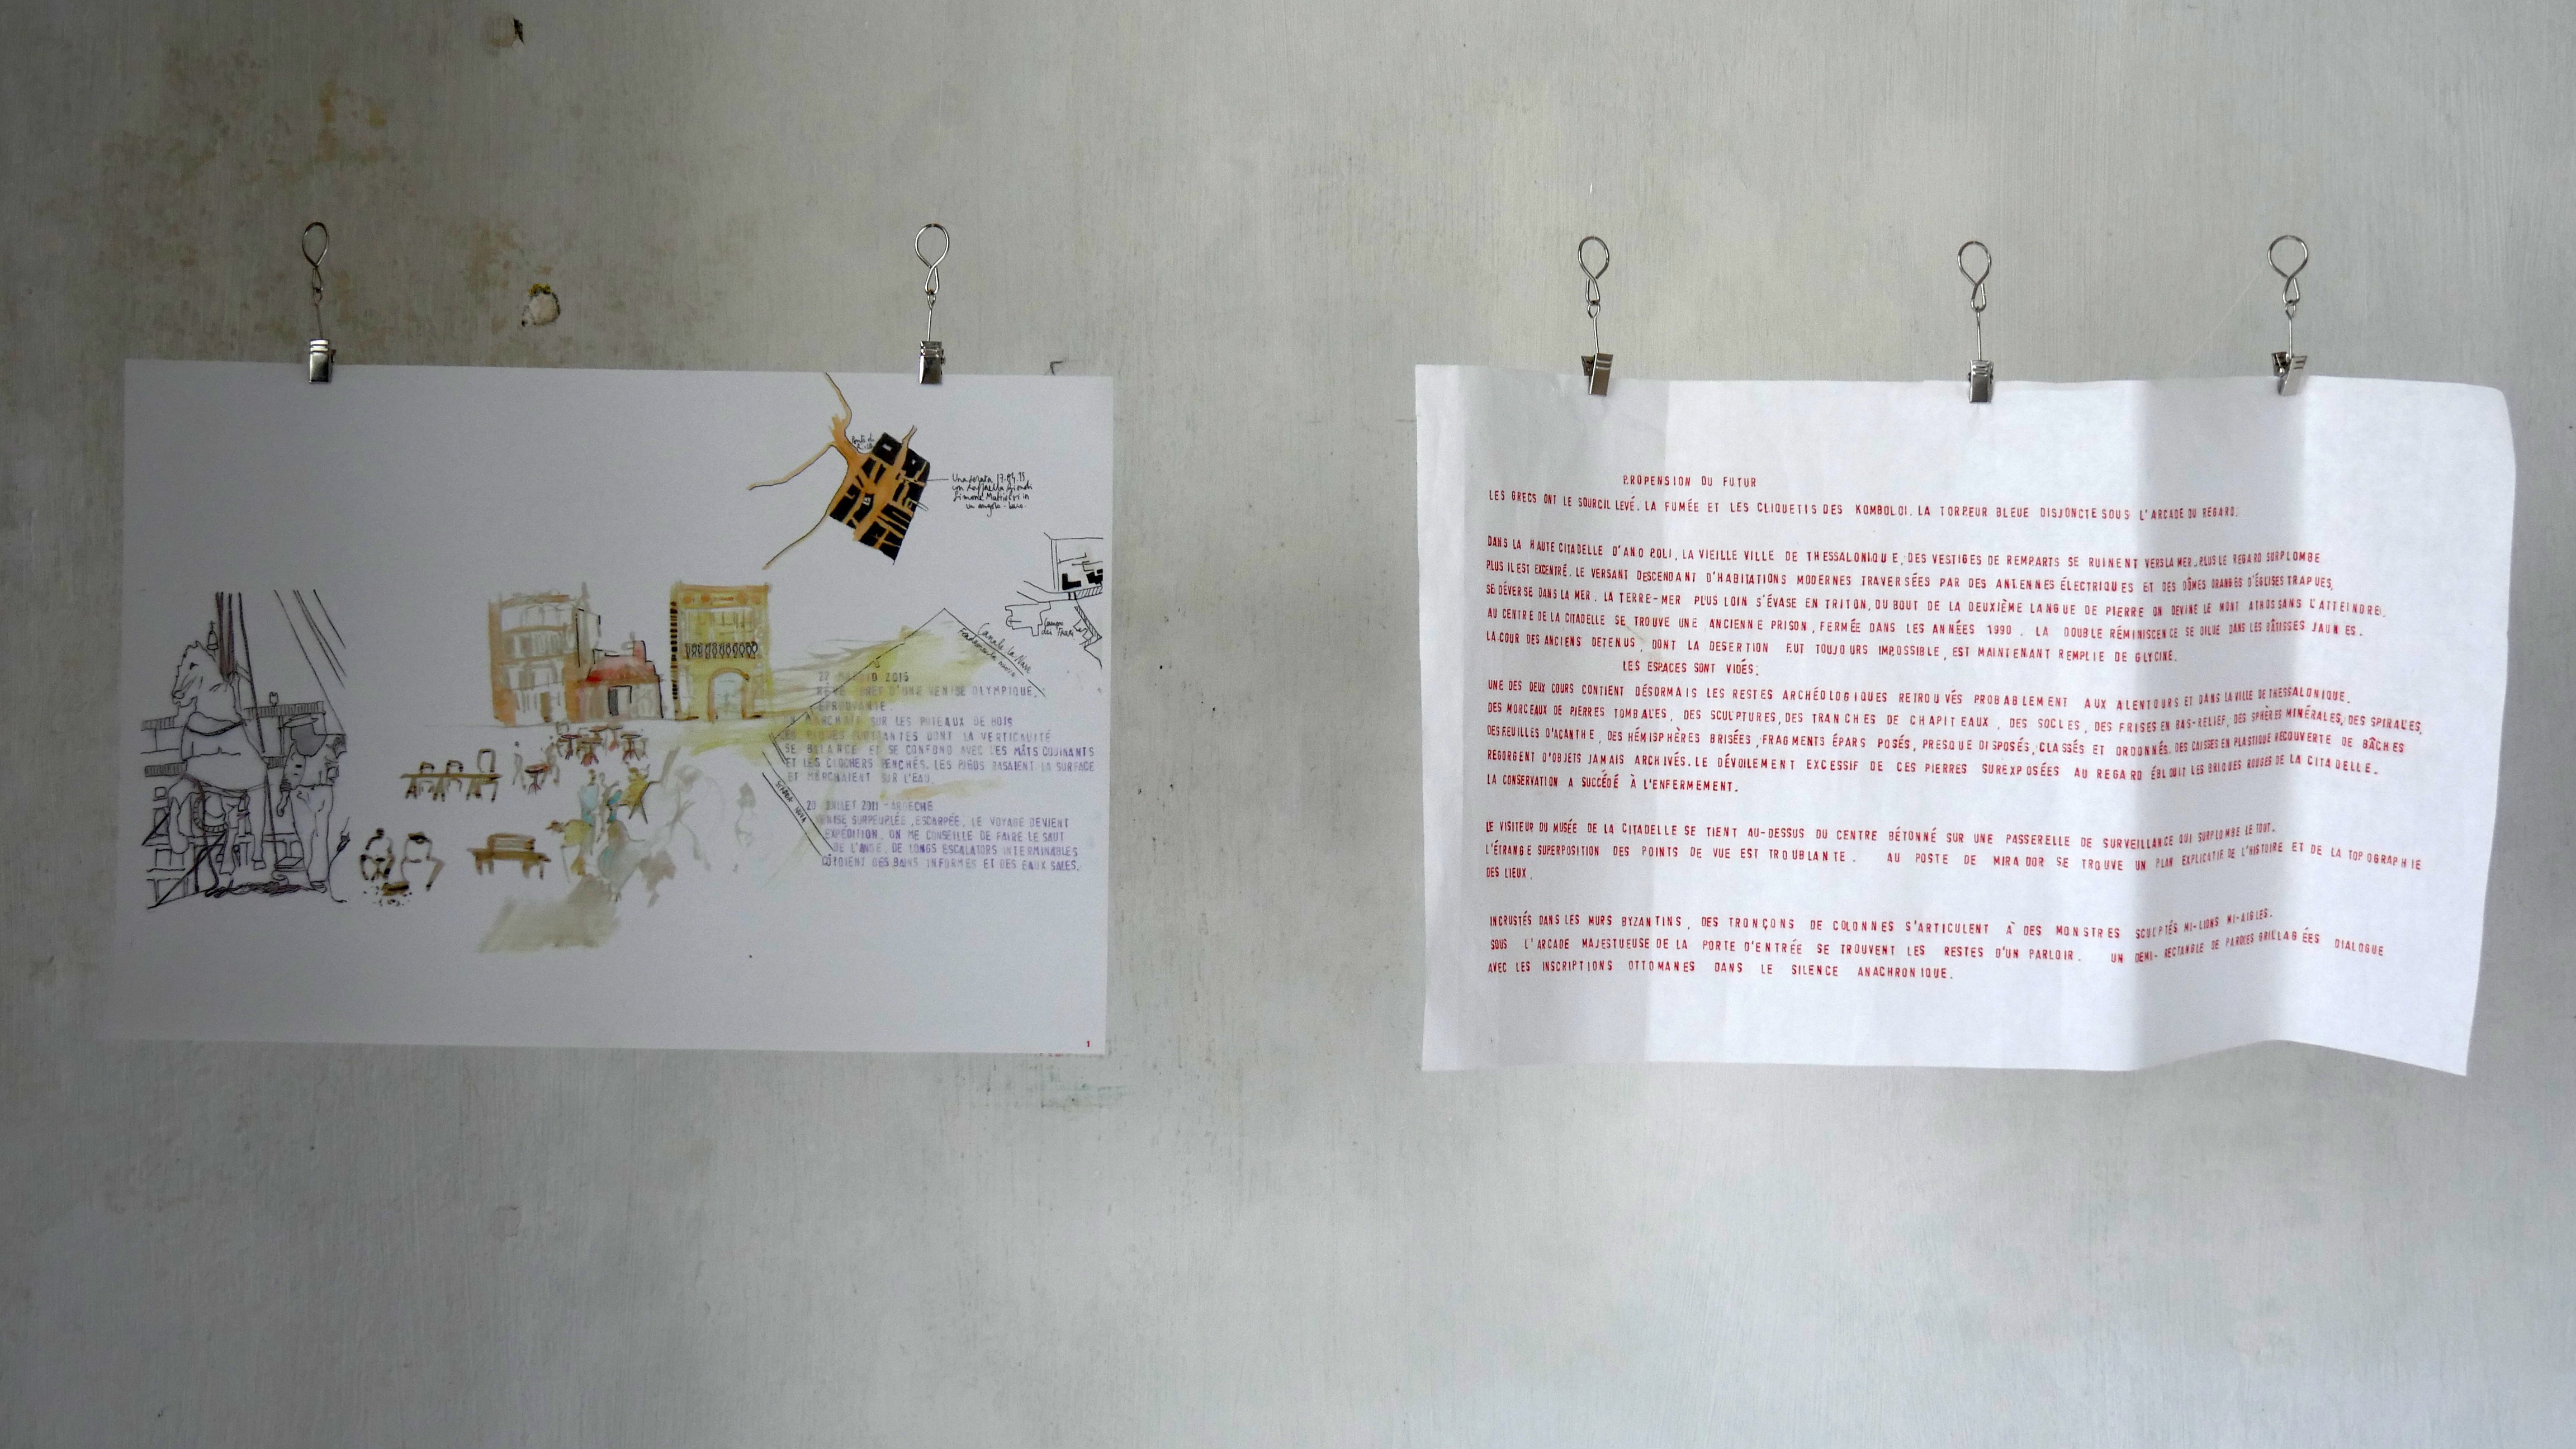 Una serata 17.04.93
con Raffaella Biondi
in
un angolo-buio.
Canale la Nave
27 MAGGIO 2015
D'UNE VENISE OLYMPIQUE,
ÉPROUVANTE.
SUR LES POTEAUX DE BOIS
DONT LA VERTICALITÉ
SE BALANCE ET SE CONFOND AVEC LES MÂTS COUINANTS
ET LES CLOCHERS PENCHÉS. LES PIEDS RASAIENT LA SURFACE
ET MARCHAIENT SUR L'EAU.
20 JUILLET 2011 - ARDECHE
VENISE SURPEUPLÉE, ESCARPÉE, LE VOYAGE DEVIENT
EXPÉDITION. ON ME CONSEILLE DE FAIRE LE SAUT
DE L'ANGE. DE LONGS ESCALATORS INTERMINABLES
CÔTOIENT DES BAINS INFORMES ET DES EAUX SALES.
1
PROPENSION DU FUTUR
LES GRECS ONT LE SOURCIL LEVÉ. LA FUMÉE ET LES CLIQUETIS DES KOMBOLOI. LA TORPEUR BLEUE DISJONCTE SOUS L'ARCADE DU REGARD.
DANS LA HAUTE CITADELLE D'ANO POLI, LA VIEILLE VILLE DE THESSALONIQUE, DES VESTIGES DE REMPARTS SE RUINENT VERS LA MER. PLUS LE REGARD SURPLOMBE
PLUS IL EST EXCENTRÉ. LE VERSANT DESCENDANT D'HABITATIONS MODERNES TRAVERSÉES PAR DES ANTENNES ÉLECTRIQUES ET DES DÔMES ORANGES D'ÉGLISES TRAPUES,
SE DÉVERSE DANS LA MER. LA TERRE-MER PLUS LOIN S'ÉVASE EN TRITON, DU BOUT DE LA DEUXIÈME LANGUE DE PIERRE ON DEVINE LE MONT ATHOS SANS L'ATTEINDRE.
AU CENTRE DE LA CITADELLE SE TROUVE UNE ANCIENNE PRISON, FERMÉE DANS LES ANNÉES 1990. LA DOUBLE RÉMINISCENCE SE DILUE DANS LES BÂTISSES JAUNES.
LA COUR DES ANCIENS DETENUS, DONT LA DESERTION FUT TOUJOURS IMPOSSIBLE, EST MAINTENANT REMPLIE DE GLYCINE.
LES ESPACES SONT VIDÉS.
UNE DES DEUX COURS CONTIENT DÉSORMAIS LES RESTES ARCHÉOLOGIQUES RETROUVÉS PROBABLEMENT AUX ALENTOURS ET DANS LA VILLE DE THESSALONIQUE.
DES MORCEAUX DE PIERRES TOMBALES, DES SCULPTURES, DES TRANCHES DE CHAPITEAUX, DES SOCLES, DES FRISES EN BAS-RELIEF, DES SPHÈRES MINÉRALES, DES SPIRALES,
DES FEUILLES D'ACANTHE, DES HÉMISPHÈRES BRISÉES, FRAGMENTS ÉPARS POSÉS, PRESQUE DISPOSÉS, CLASSÉS ET ORDONNÉS. DES CAISSES EN PLASTIQUE RECOUVERTE DE BÂCHES
REGORGENT D'OBJETS JAMAIS ARCHIVÉS. LE DÉVOILEMENT EXCESSIF DE CES PIERRES SUREXPOSÉES AU REGARD ÉBLOUIT LES BRIQUES ROUGES DE LA CITADELLE.
LA CONSERVATION A SUCCÉDÉ À L'ENFERMEMENT.
LE VISITEUR DU MUSÉE DE LA CITADELLE SE TIENT AU-DESSUS DU CENTRE BÉTONNÉ SUR UNE PASSERELLE DE SURVEILLANCE QUI SURPLOMBE LE TOUT.
L'ÉTRANGE SUPERPOSITION DES POINTS DE VUE EST TROUBLANTE. AU POSTE DE MIRADOR SE TROUVE UN PLAN EXPLICATIF DE L'HISTOIRE ET DE LA TOPOGRAPHIE
DES LIEUX.
INCRUSTÉS DANS LES MURS BYZANTINS, DES TRONÇONS DE COLONNES S'ARTICULENT À DES MONSTRES SCULPTÉS MI-LIONS MI-AIGLES.
SOUS L'ARCADE MAJESTUEUSE DE LA PORTE D'ENTRÉE SE TROUVENT LES RESTES D'UN PARLOIR. UN DEMI-RECTANGLE DE PAROIES GRILLAGÉES DIALOGUE
AVEC LES INSCRIPTIONS OTTOMANES DANS LE SILENCE ANACHRONIQUE.